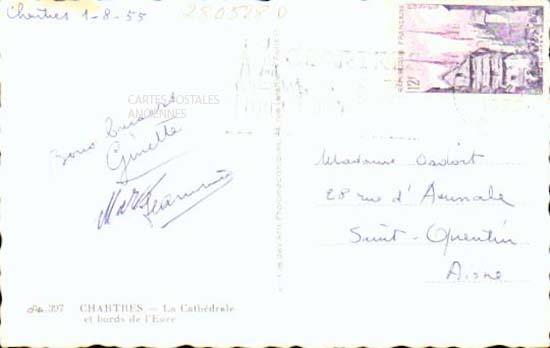 Chartres 1-8-55
280528 D
RÉPUBLIQUE FRANÇAISE
12F
CARTES POSTALES
ANCIENNES
Bons Baisers
Ginette
Marc Jeannine
Madame
28 rue d'Aumale
Saint-Quentin
Aisne
397 CHARTRES — La Cathédrale
et bords de l'Eure